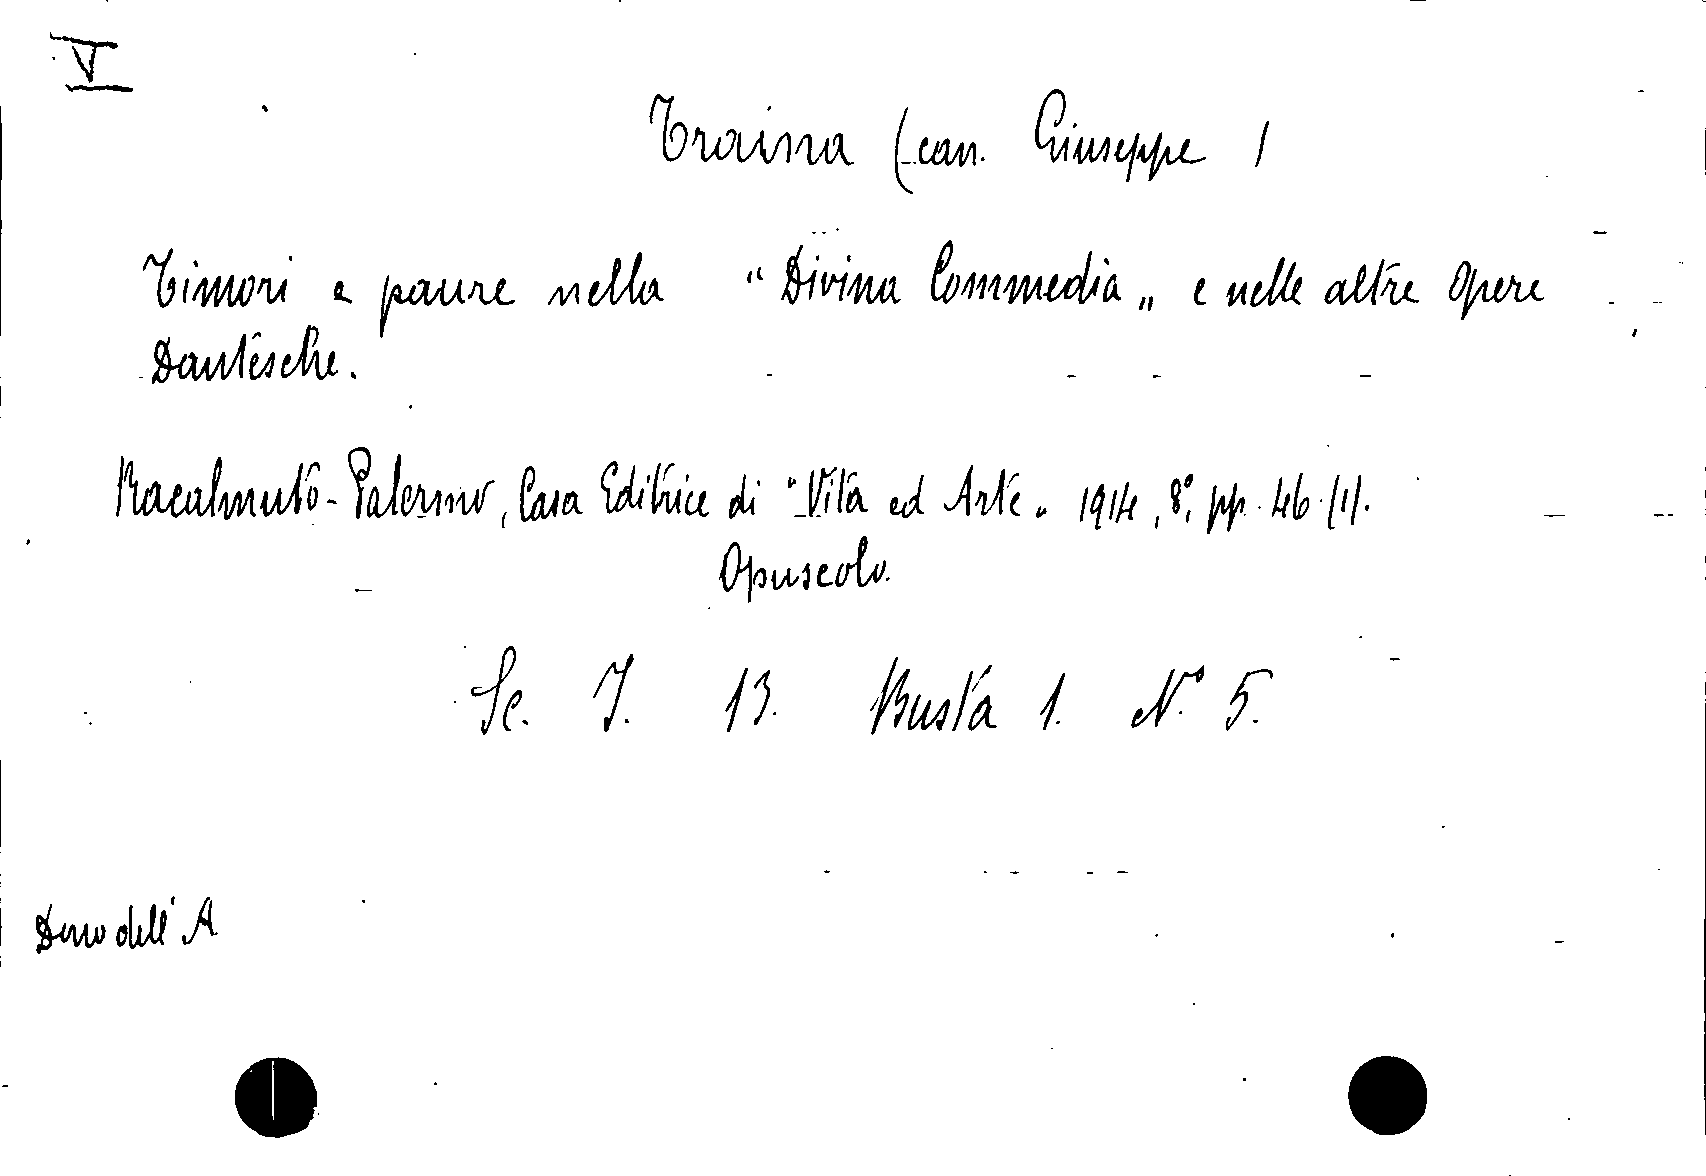 V
Traina (can. Giuseppe)
Timori e paure nella "Divina Commedia„ e nelle altre Opere
Dantesche.
Racalmuto-Palermo, Casa Editrice di "Vita ed Arte„ 1914, 8°, pp. 46.(1).
Opuscolo.
Sc. I. 13. Busta 1. N° 5.
Dono dell'A